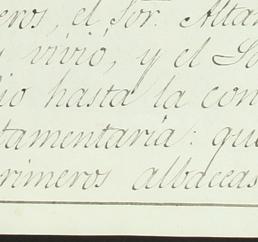 eros, el Sor. Altam
y vivió, y el So
dio hasta la con
tamentaría: que
primeros albaceas